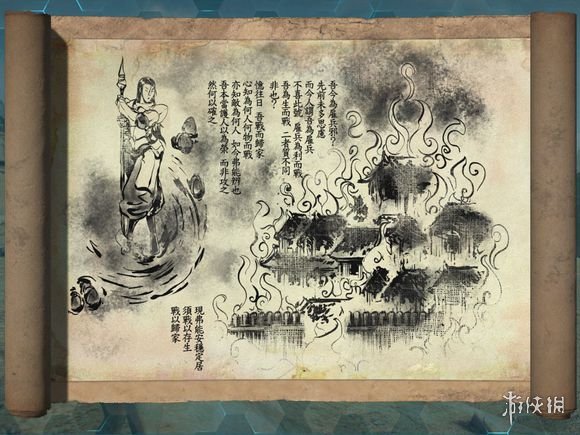 吾今為雇兵邪？
先前未多思慮
而今人謂吾為雇兵
不喜此號 雇兵為利而戰
吾為生而戰 二者質不同
非也？
憶往日 吾戰而歸家
心知為何人何物而戰
亦知敵為何人 如今弗能辨也
吾本當護人以為榮 而非攻之
然何以確之
現弗能安穩定居
須戰以存生
戰以歸家
游侠网